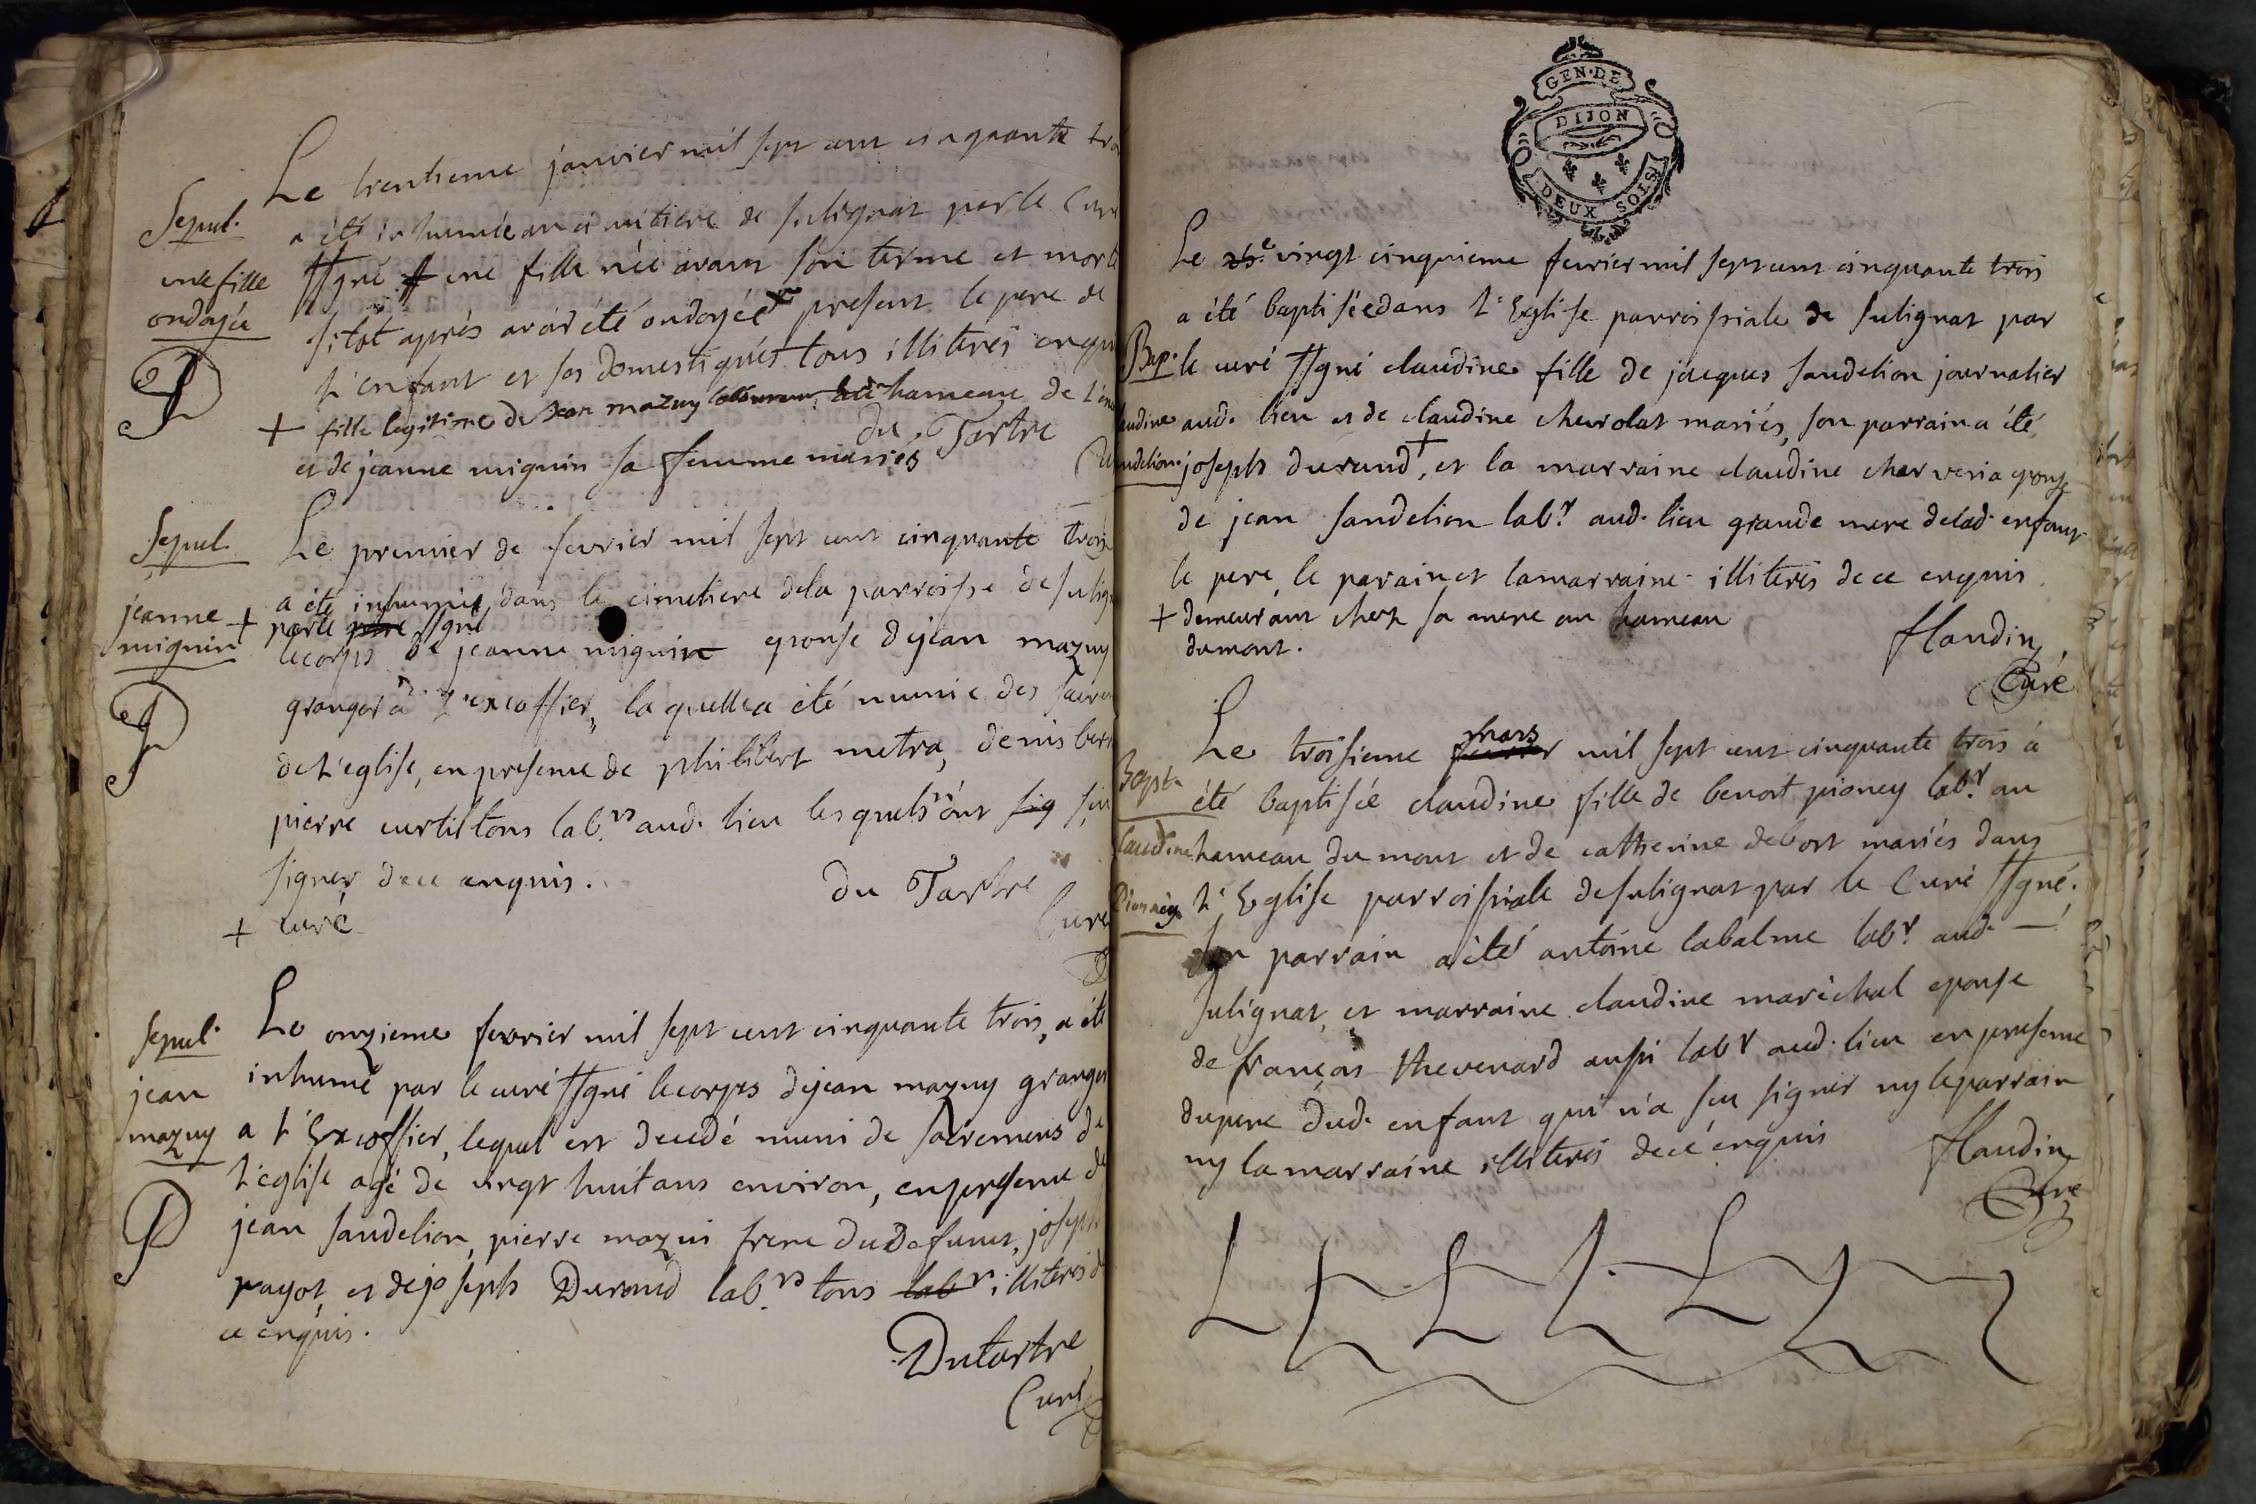 Sepul.
une fille
ondoyée
Le trentieme janvier mil sept cent cinquante
a été inhumée au cimitiere de sulignat par le Curé
ssgné une fille née avant son terme et morte
sitot aprés avoir été ondoyée + present le pere de
L'enfant et ses domestiques tous illiterés enquis
+ fille legitime de jean mazuy hameau de
et de jeanne miguin sa femme mariés
du Tartre
Sepul.
jeanne
miguin
Le premier de fevrier mil sept cent cinquante trois
a été inhumé dans le cimetiere dela parroisse de
+ par le ssgné
lecorps de jeanne miguin epouse dejean mazuy
granger à l'excoffier, laquelle a été munie des
de L'eglise, en presence de philibert metra, denis
pierre curtil tous lab.rs aud. lieu lesquels n'ont sig
signer dece enquis.
+ curé
du Tartre
Curé
Sepul.
jean
mazuy
Le onzieme fevrier mil sept cent cinquante trois, a été
inhumé par le curé ssgné lecorps dejean mazuy granger
a L'Excoffier, lequel est decedé muni de sacremens de
L'eglise agé de vingt huit ans environ, en presence de
jean sandelion, pierre mazui frere du defunt, joseph
payot, et dejoseph Durand lab.rs tous labr illiterés
ce enquis.
Dutartre
Curé
GEN·DE
DIJON
DEUX SOLS
Bap.
Le 25.e vingt cinquieme fevrier mil sept cent cinquante trois
a été baptisée dans L'Eglise parroissiale de sulignat par
le curé ssgné claudine fille de jacques sandelion journalier
aud. lieu et de claudine chevrolat mariés, son parrain a été
joseph durand +, et la marraine claudine charveria epouse
de jean sandelion lab.r aud. lieu grande mere delad. enfant
le pere, le parain et lamarraine illiterés dece enquis
+ demeurant chez sa mere au hameau
dumont.
flandin
Curé
Bapt.
Claudine
Pionney
Le troisieme fevrier mars mil sept cent cinquante trois à
été baptisée claudine fille de benoit pioney lab.r au
hameau du mont et de catherine debost mariés dans
L'Eglise parroissiale desulignat par le Curé ssgné.
son parrain a été antoine labalme lab.r aud.
sulignat, et marraine claudine maréchal epouse
de françois thevenard aussi lab.r aud. lieu en presence
dupere dud. enfant qui n'a sçu signer ny leparrain
ny la marraine illiterés dece enquis
flandin
Curé